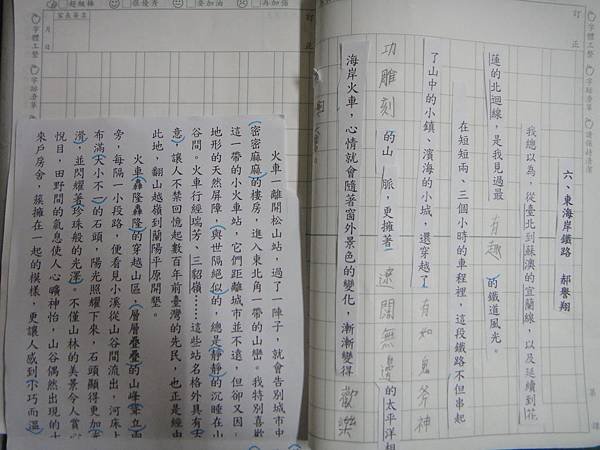 六、東海岸鐵路 郝譽翔
我總以為，從臺北到蘇澳的宜蘭線，以及延續到花
蓮的北迴線，是我見過最 有趣 的鐵道風光。
在短短兩、三個小時的車程裡，這段鐵路不但串起
了山中的小鎮、濱海的小城，還穿越了 有如鬼斧神
功雕刻 的山 脈，更擁著 遼闊無邊 的太平洋
海岸火車，心情就會隨著窗外景色的變化，漸漸變得 歡樂
訂正
第 課
家長簽名
月 日
超級棒 很優秀 要加油 再加強
字體工整
字跡潦草
請保持清潔
火車一離開松山站，過了一陣子，就會告別城市中
密密麻麻的樓房，進入東北角一帶的山巒。我特別喜歡
這一帶的小火車站，它們距離城市並不遠，但卻又因
地形的天然屏障，與世隔絕似的，總是靜靜的沉睡在山
谷間。火車行經瑞芳、三貂嶺……這些站名格外具有
意，讓人不禁回憶起數百年前臺灣的先民，也正是經由
此地，翻山越嶺到蘭陽平原開墾。
火車轟隆轟隆的穿越山區，層層疊疊的山峰聳立兩
旁，每隔一小段路，便看見小溪從山谷間流出，河床上
布滿大小不一的石頭，陽光照耀下來，石頭顯得更加
滑，並閃耀著珍珠般的光澤。不僅山林的美景令人賞心
悅目，田野間的氣息使人心曠神怡，山谷偶然出現的十
來戶房舍，簇擁在一起的模樣，更讓人感到小巧而溫